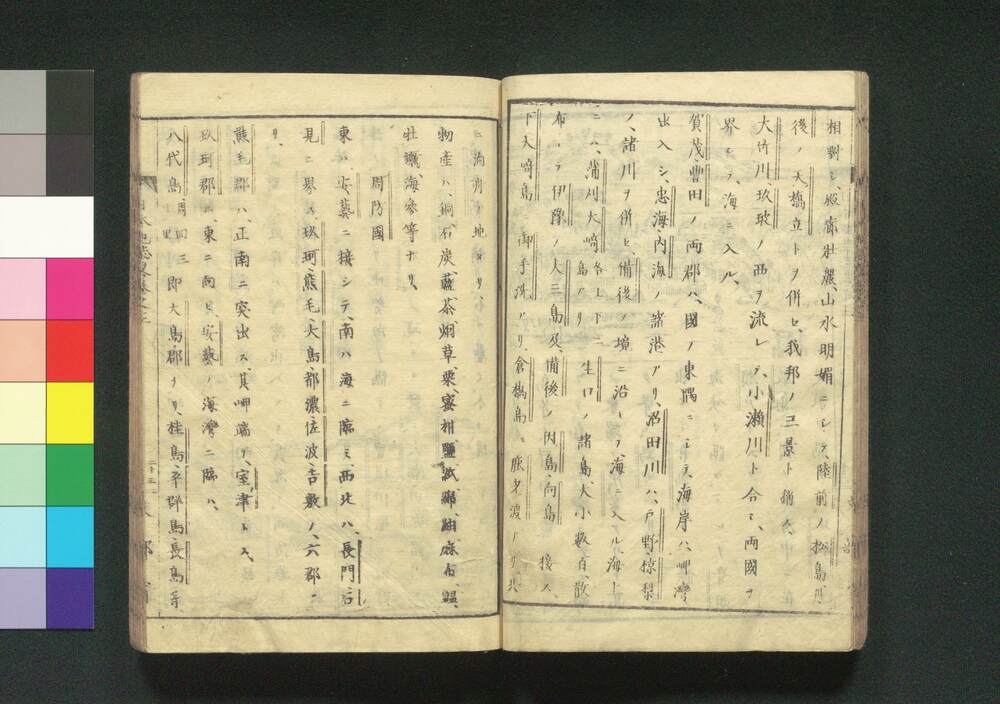 相對シ、殿齋壯麗、山水明媚ニシテ、陸前ノ松島、丹
後ノ天橋立トヲ併セ、我邦ノ三景ト稱ス、
大竹川玖玻ノ西ヲ流レ、小瀬川ト合シ、両國ヲ
界シテ、海ニ入ル、
賀茂豊田ノ両郡ハ、國ノ東隅ニシテ、海岸ハ、岬灣
出入シ、忠海、内海ノ諸港アリ、沼田川ハ、戸野椋梨
ノ、諸川ヲ併セ、備後ノ境ニ沿フテ、海ニ入ル、海上
ニハ、蒲刈大崎島アリ、生口ノ諸島、大小數百、散
布シテ伊豫ノ大三島及備後ノ因島、向島接ス、
下大崎島御手洗アリ、倉橋島ニ鹿老渡アリ、共
ニ
物産ハ、銅、石炭、藍、茶、烟草、粟、蜜柑、鹽、紙、綿、麻布、
牡蠣、海參等ナリ、
周防國
東ハ、安藝ニ接シテ、南ハ海ニ臨ミ、西北ハ、長門、石
見ニ界ス、玖珂、熊毛、大島、都濃、佐波、吉敷ノ、六郡ナ
リ、
熊毛郡ハ、正南ニ突出ス、其岬端ヲ、室津トス、
玖珂郡ハ、東ニ向ヒ、安藝ノ海灣ニ臨ム、
八代島、即大島郡ナリ、桂島、平群島、長島等